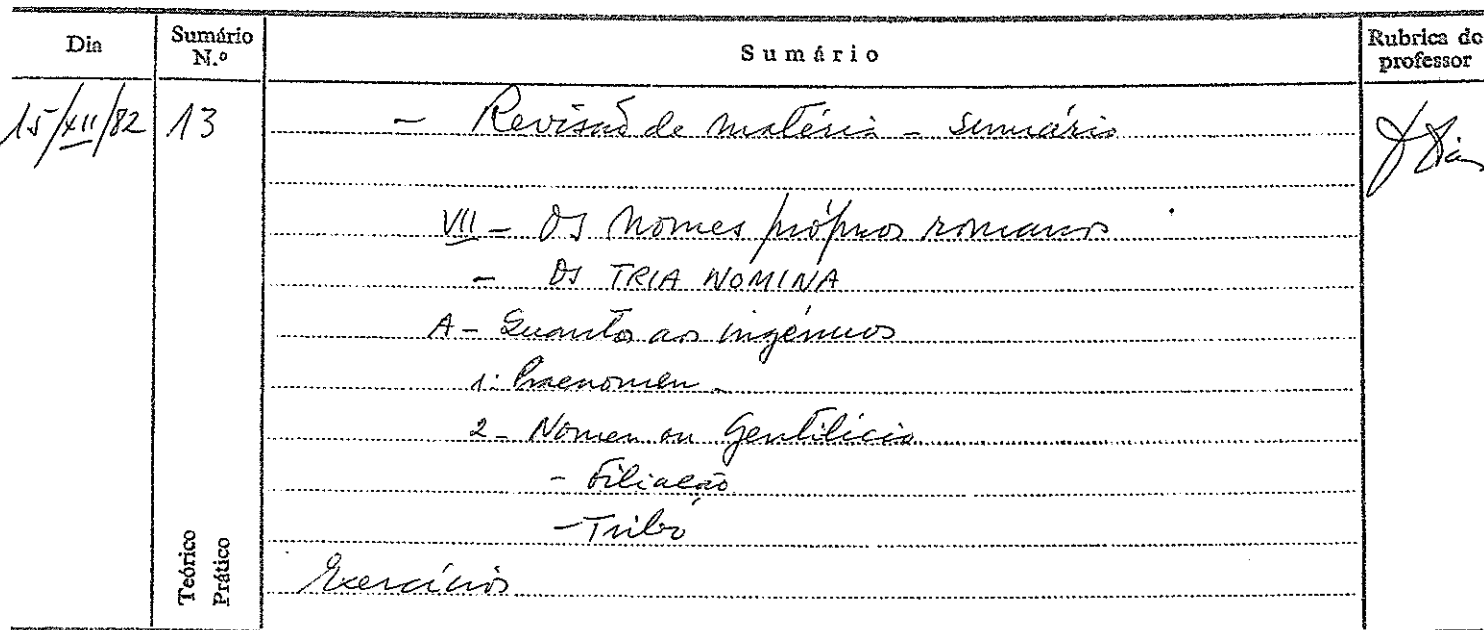 Dia Sumário N.º Sumário Rubrica do professor
15/XII/82 13 - Revisão de matéria - sumário
VII - Os nomes próprios romanos
- Os TRIA NOMINA
A - Quanto aos ingénuos
1. Praenomen.
2 - Nomen ou Gentilício
- Filiação
- Tribo
Teórico
Prático
Exercícios